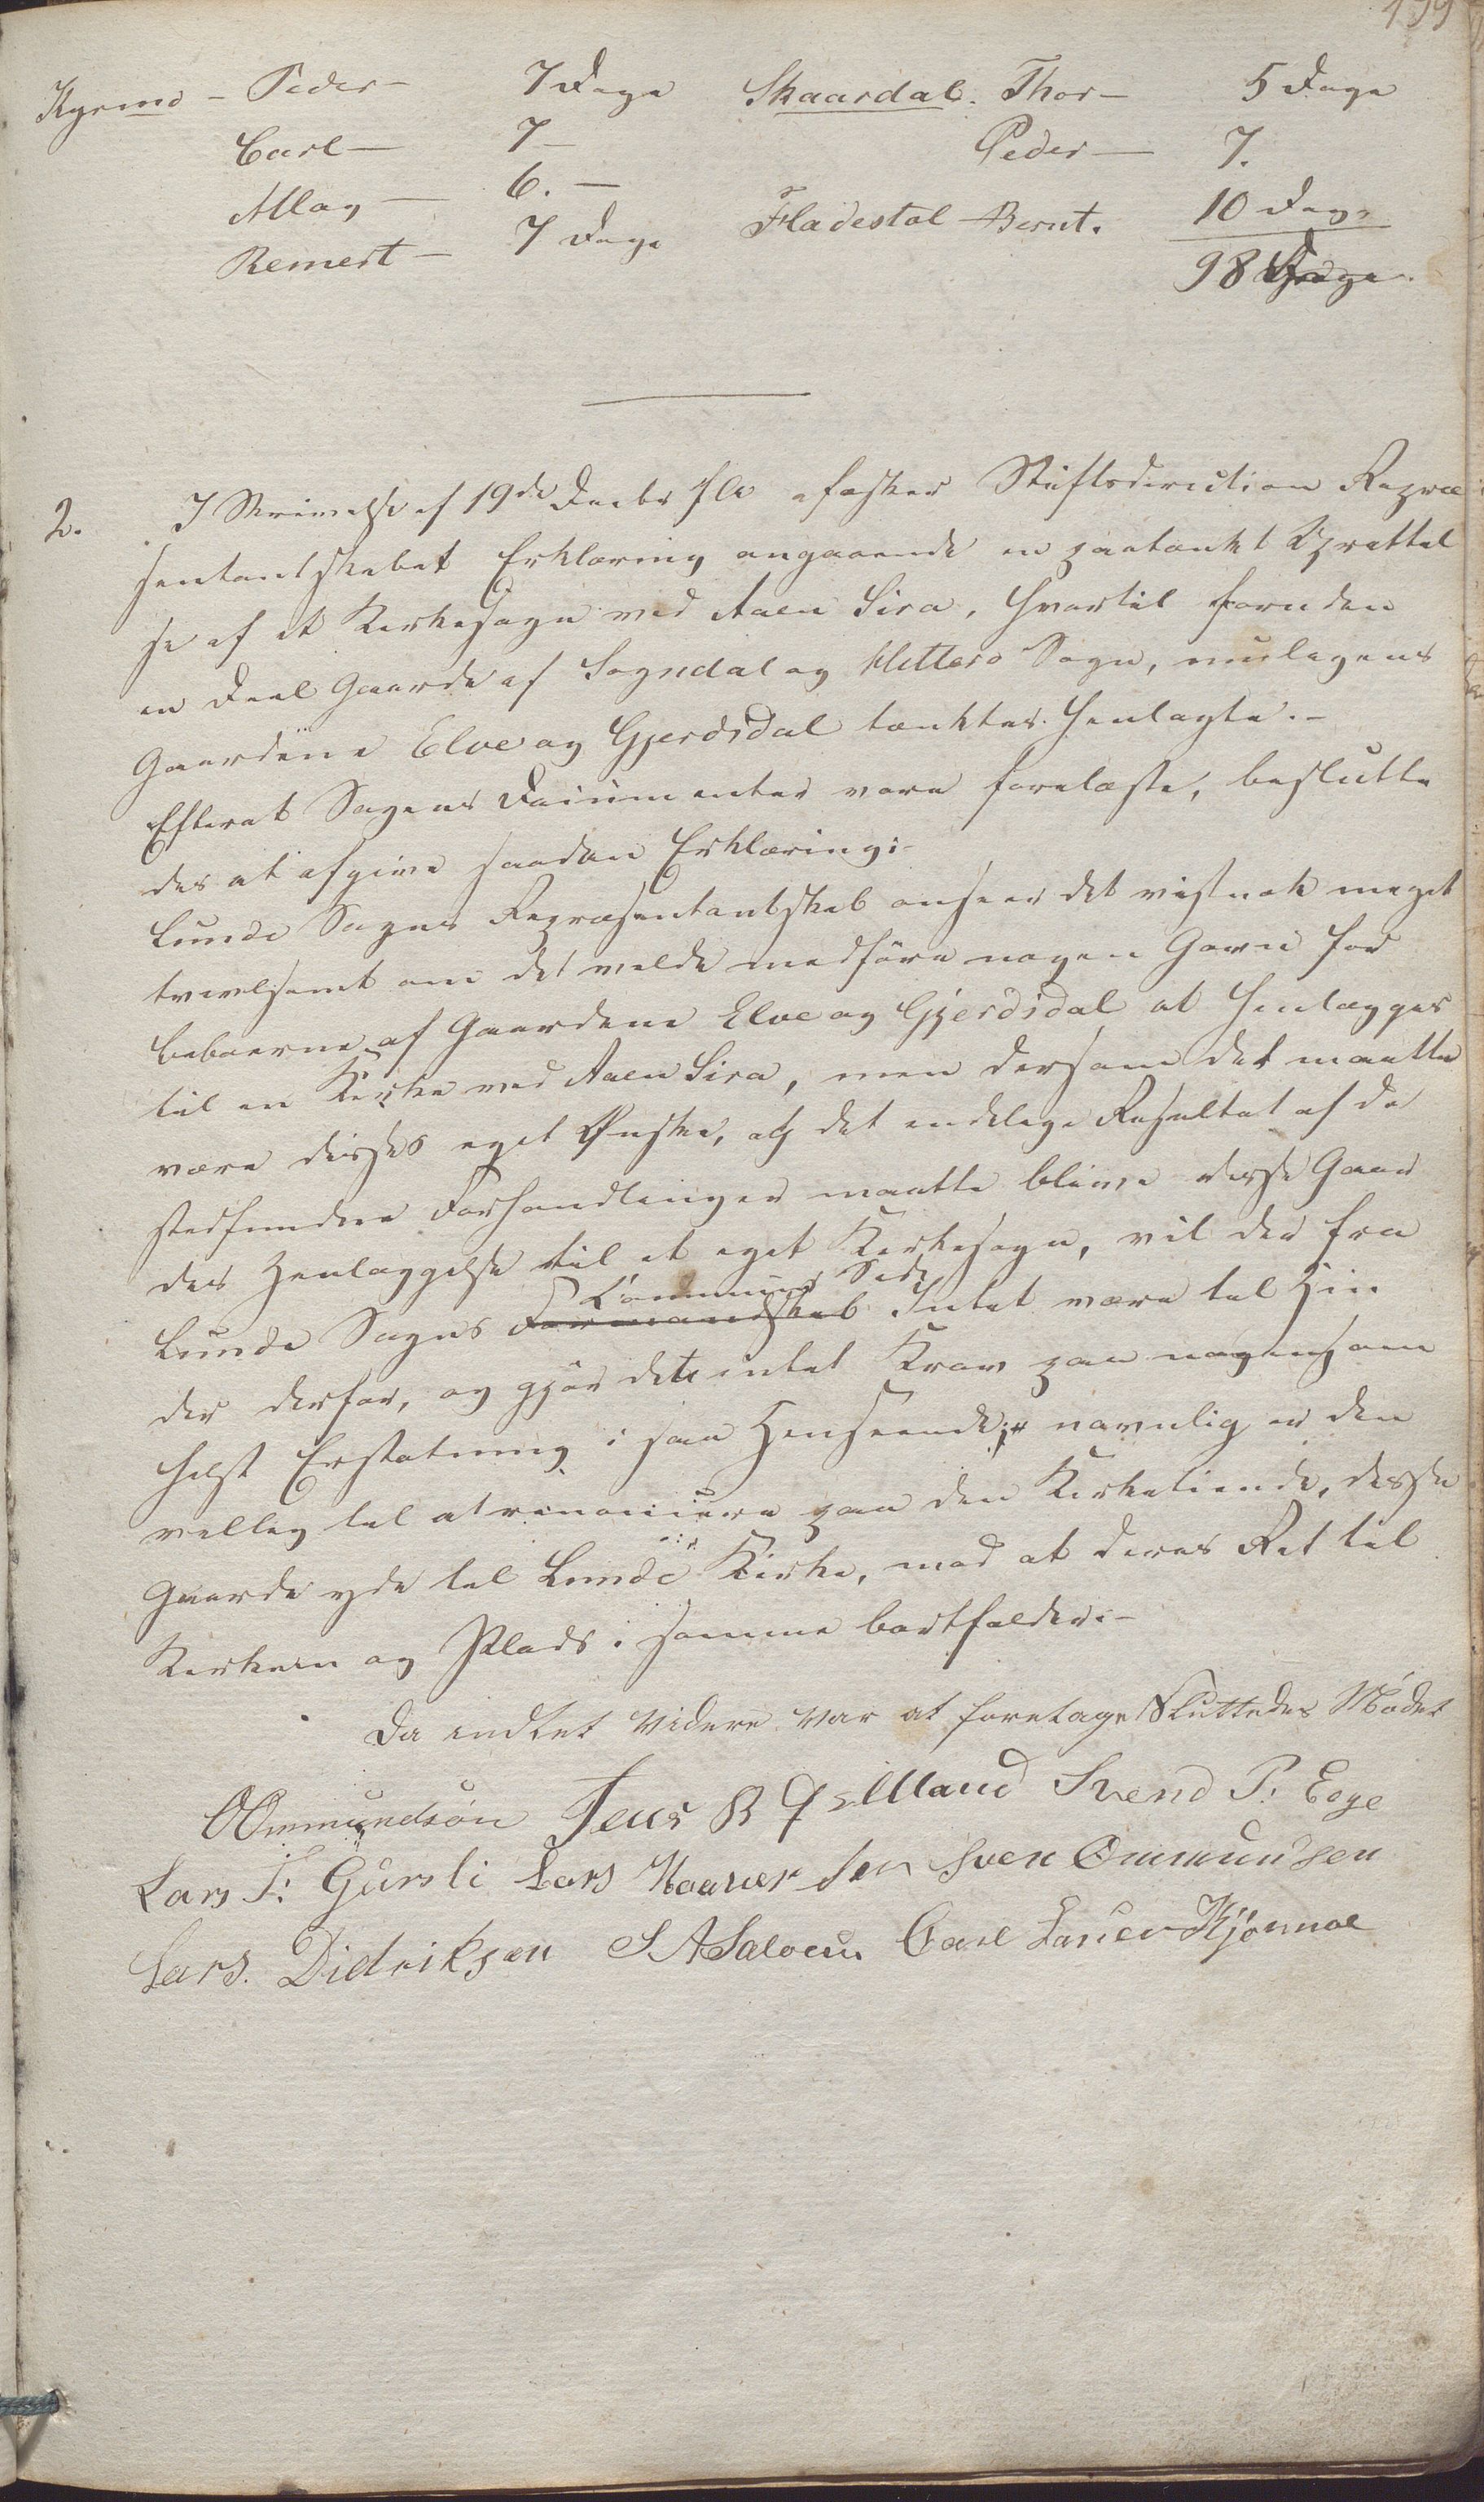 199
Kyrmo - Peder - 7 Dage Skaardal. Thor - 5 Dage
Carl - 7 - Peder - 7.
Atlag - 6. - Fladestøl Bernt. 10 Dage
Remert - 7 Dage 98 Dage.
2. I Skrivelse af 19de Decbr f. A. æsker Stiftsdirection Repræ
sentantskabet Erklæring angaaende en paatænkt Oprettel
se af et Kirkesogn ved Aaen Sira, hvortil foruden
en Deel Gaarde af Sogndal og Hitterø Sogn, muligens
Gaardene Elve og Gjerdsdal tænktes henlagte.-
Efterat Sagens Documenter vare forelæste, beslutte
des at afgive saadan Erklæring:-
Lunde Sogns Repræsentantskab anseer det vistnok meget
tvivlsomt om det vilde medføre nogen Gavn for
beboerne af Gaardene Elve og Gjerdsdal at henlægges
til en Kirke ved Aaen Sira, men dersom det maatte
være disses eget Ønske, og det endelige Resultat af de
stedfundne Forhandlinger maatte blive disse Gaar
des Henlæggelse til et eget Kirkesogn, vil der fra
Communes Side
Lunde Sogns Formandskab Intet være til Hin
der derfor, og gjør det intet Krav paa nogensom
helst Erstatning i saa Henseende, navnlig er den
villig til at renoncere paa den Kirketiende, disse
Gaarde yde til Lunde Kirke, mod at deres Ret til
Kirken og Plads i samme bortfalder.-
Da indtet videre var at foretage Sluttedes Mødet
O Ommundsøn Jens B Olland Svend P: Eege
Lars T: Gursli Lars Haaversen Sven Ommundsen
Lars. Didriksen S A Saloen Carl Larsen Kjørmoe